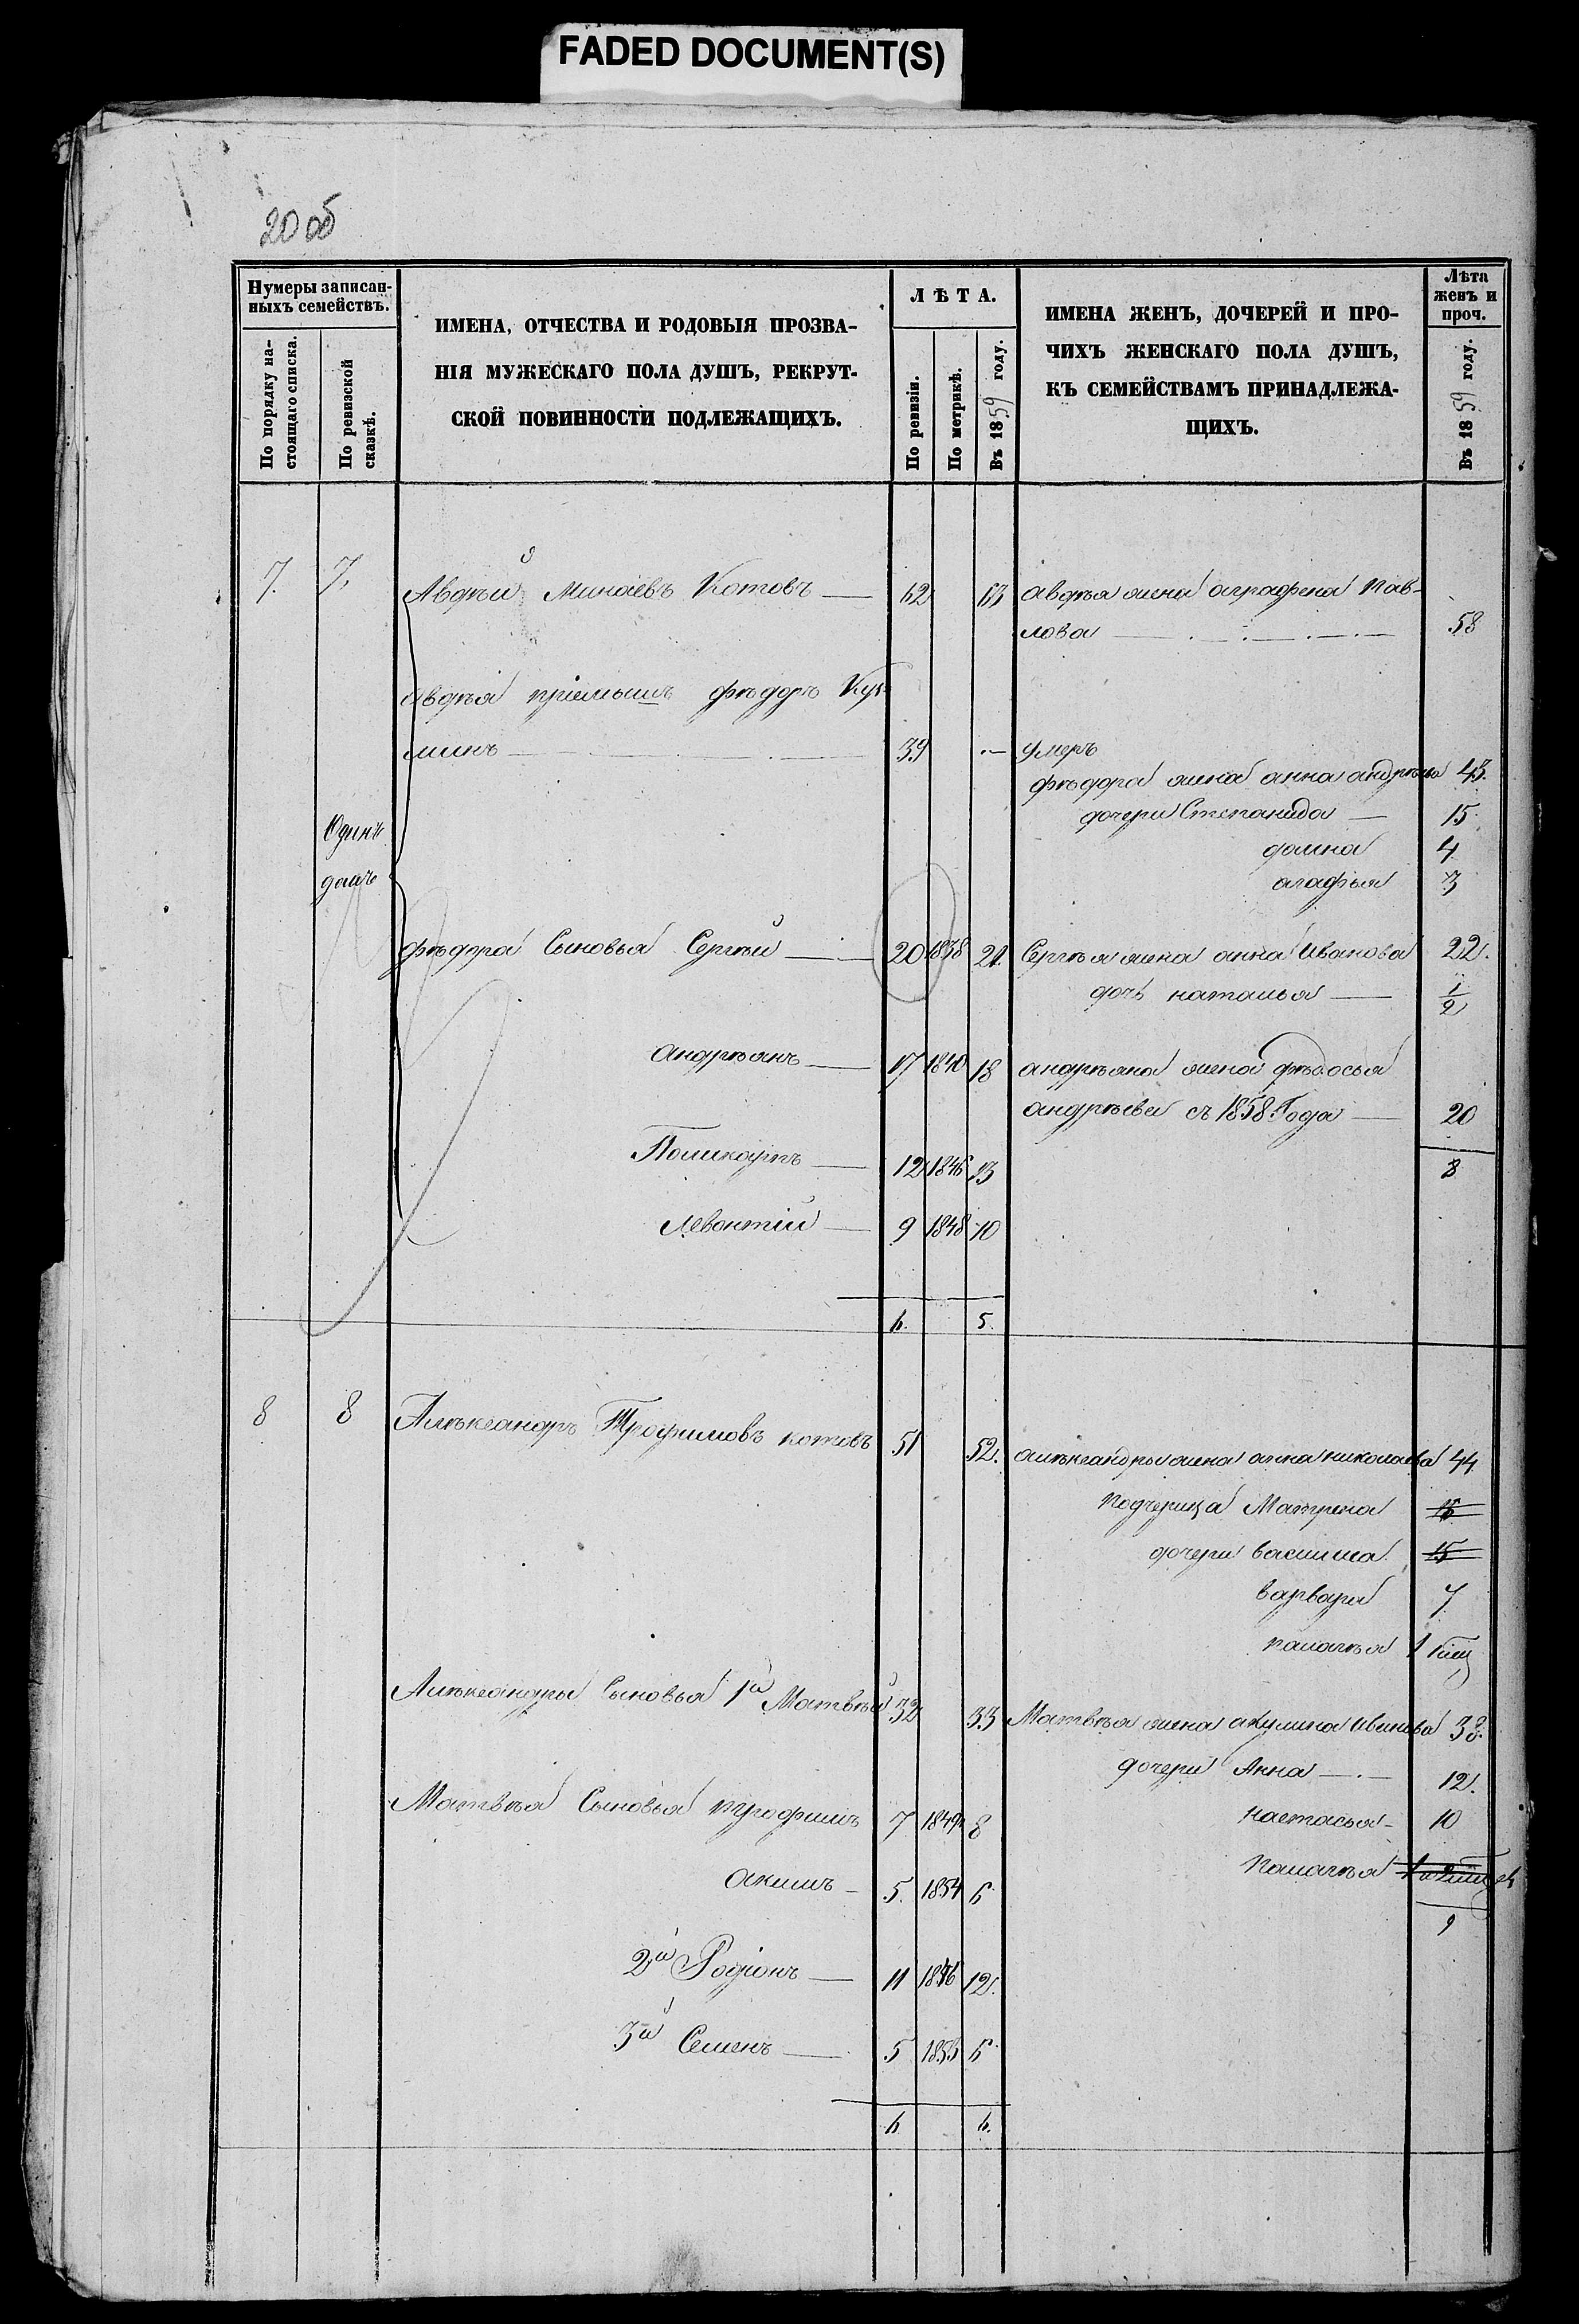 FADED DOCUMENT(S)
20 об
Нумеры записан-
ныхъ семействъ.
По порядку на-
стоящаго списка.
По ревизской
сказкѣ.
ИМЕНА, ОТЧЕСТВА И РОДОВЫЯ ПРОЗВА-
НІЯ МУЖЕСКАГО ПОЛА ДУШЪ, РЕКРУТ-
СКОЙ ПОВИННОСТИ ПОДЛЕЖАЩИХЪ.
ЛѢТА.
По ревизіи.
По метрикѣ.
Въ 1859 году.
ИМЕНА ЖЕНЪ, ДОЧЕРЕЙ И ПРО-
ЧИХЪ ЖЕНСКАГО ПОЛА ДУШЪ,
КЪ СЕМЕЙСТВАМЪ ПРИНАДЛЕЖА-
ЩИХЪ.
Лѣта
женъ и
проч.
Въ 1859 году.
7. 7. Авдѣй Минаевъ Котовъ — 62 63 авдѣя жена аграфена Пав-
лова — 58
авдѣя пріемышъ фѣдоръ Кузь
минъ — 39 — умеръ
фѣдора жена анна андрѣева 43.
дочери Степанида — 15
домна 4
агафья 3
Одинъ
домъ
фѣдора Сыновья Сергѣй — 20 1838 21. Сергѣя жена анна Иванова 22.
дочь наталья — 1/2
андрѣянъ — 17 1840 18 андрѣяна жена фѣдосья
андрѣева съ 1858 Года — 20
Поликарпъ — 12 1846 13 8
Левонтій — 9 1848 10
6. 5.
8 8 Алѣксандръ Трофимовъ котовъ 51 52. алѣксандры жена анна николаева 44
подчерица Матрена 15
дочери василиса 15
варвара 7
палагѣя 1
Алѣксандры Сыновья 1й Матвѣй 32 33 Матвѣя жена акулина Иванова 38.
дочери Анна — 12.
Матвѣя Сыновья трофимъ 7 1849 8 настасья — 10
акимъ — 5. 1854 6 палагѣя
9
2й Родіонъ — 11 1846 12.
3й Семенъ — 5 1853 6
6 6.